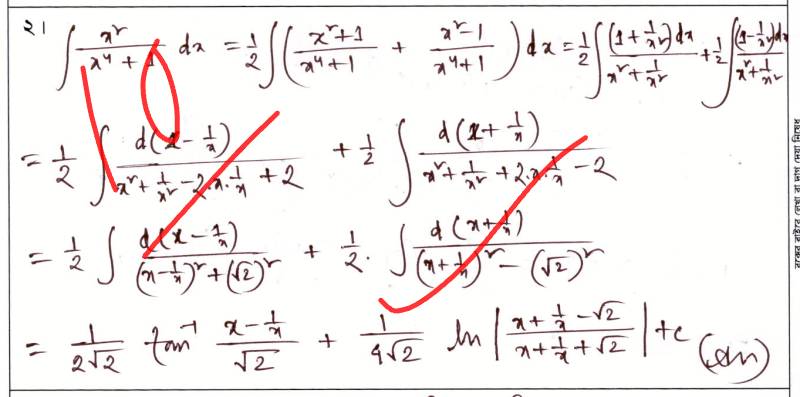 ২১। ∫ x²/(x⁴+1) dx = 1/2 ∫ ( (x²+1)/(x⁴+1) + (x²-1)/(x⁴+1) ) dx = 1/2 ∫ (1+1/x²)dx/(x²+1/x²) + 1/2 ∫ (1-1/x²)dx/(x²+1/x²)
= 1/2 ∫ d(x-1/x)/(x²+1/x²-2.x.1/x+2) + 1/2 ∫ d(x+1/x)/(x²+1/x²+2.x.1/x-2)
= 1/2 ∫ d(x-1/x)/((x-1/x)²+(√2)²) + 1/2. ∫ d(x+1/x)/((x+1/x)²-(√2)²)
= 1/(2√2) tan⁻¹ (x-1/x)/√2 + 1/(4√2) ln |(x+1/x-√2)/(x+1/x+√2)| +c (Ans)
10
বক্সের বাইরে লেখা বা দাগ দেয়া নিষেধ